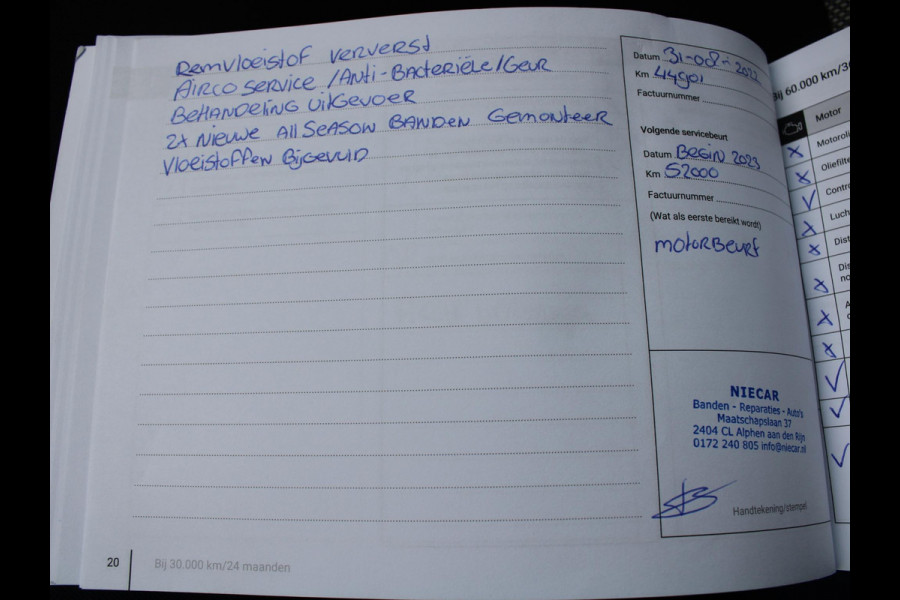 Remvloeistof ververst
Airco service / Anti-Bacteriële / Geur
Behandeling uitgevoer
2x nieuwe All Season Banden Gemonteer
Vloeistoffen Bijgevuld
Datum 31-08-2022
Km 44901
Factuurnummer
Volgende servicebeurt
Datum Begin 2023
Km 52000
Factuurnummer
(Wat als eerste bereikt wordt)
motorbeurt
NIECAR
Banden - Reparaties - Auto's
Maatschapslaan 37
2404 CL Alphen aan den Rijn
0172 240 805 info@niecar.nl
Handtekening/stempel
20
Bij 30.000 km/24 maanden
Bij 60.000 km/3
Motor
Motoroli
Oliefilte
Contr
Luch
Dist
Dis
no
A